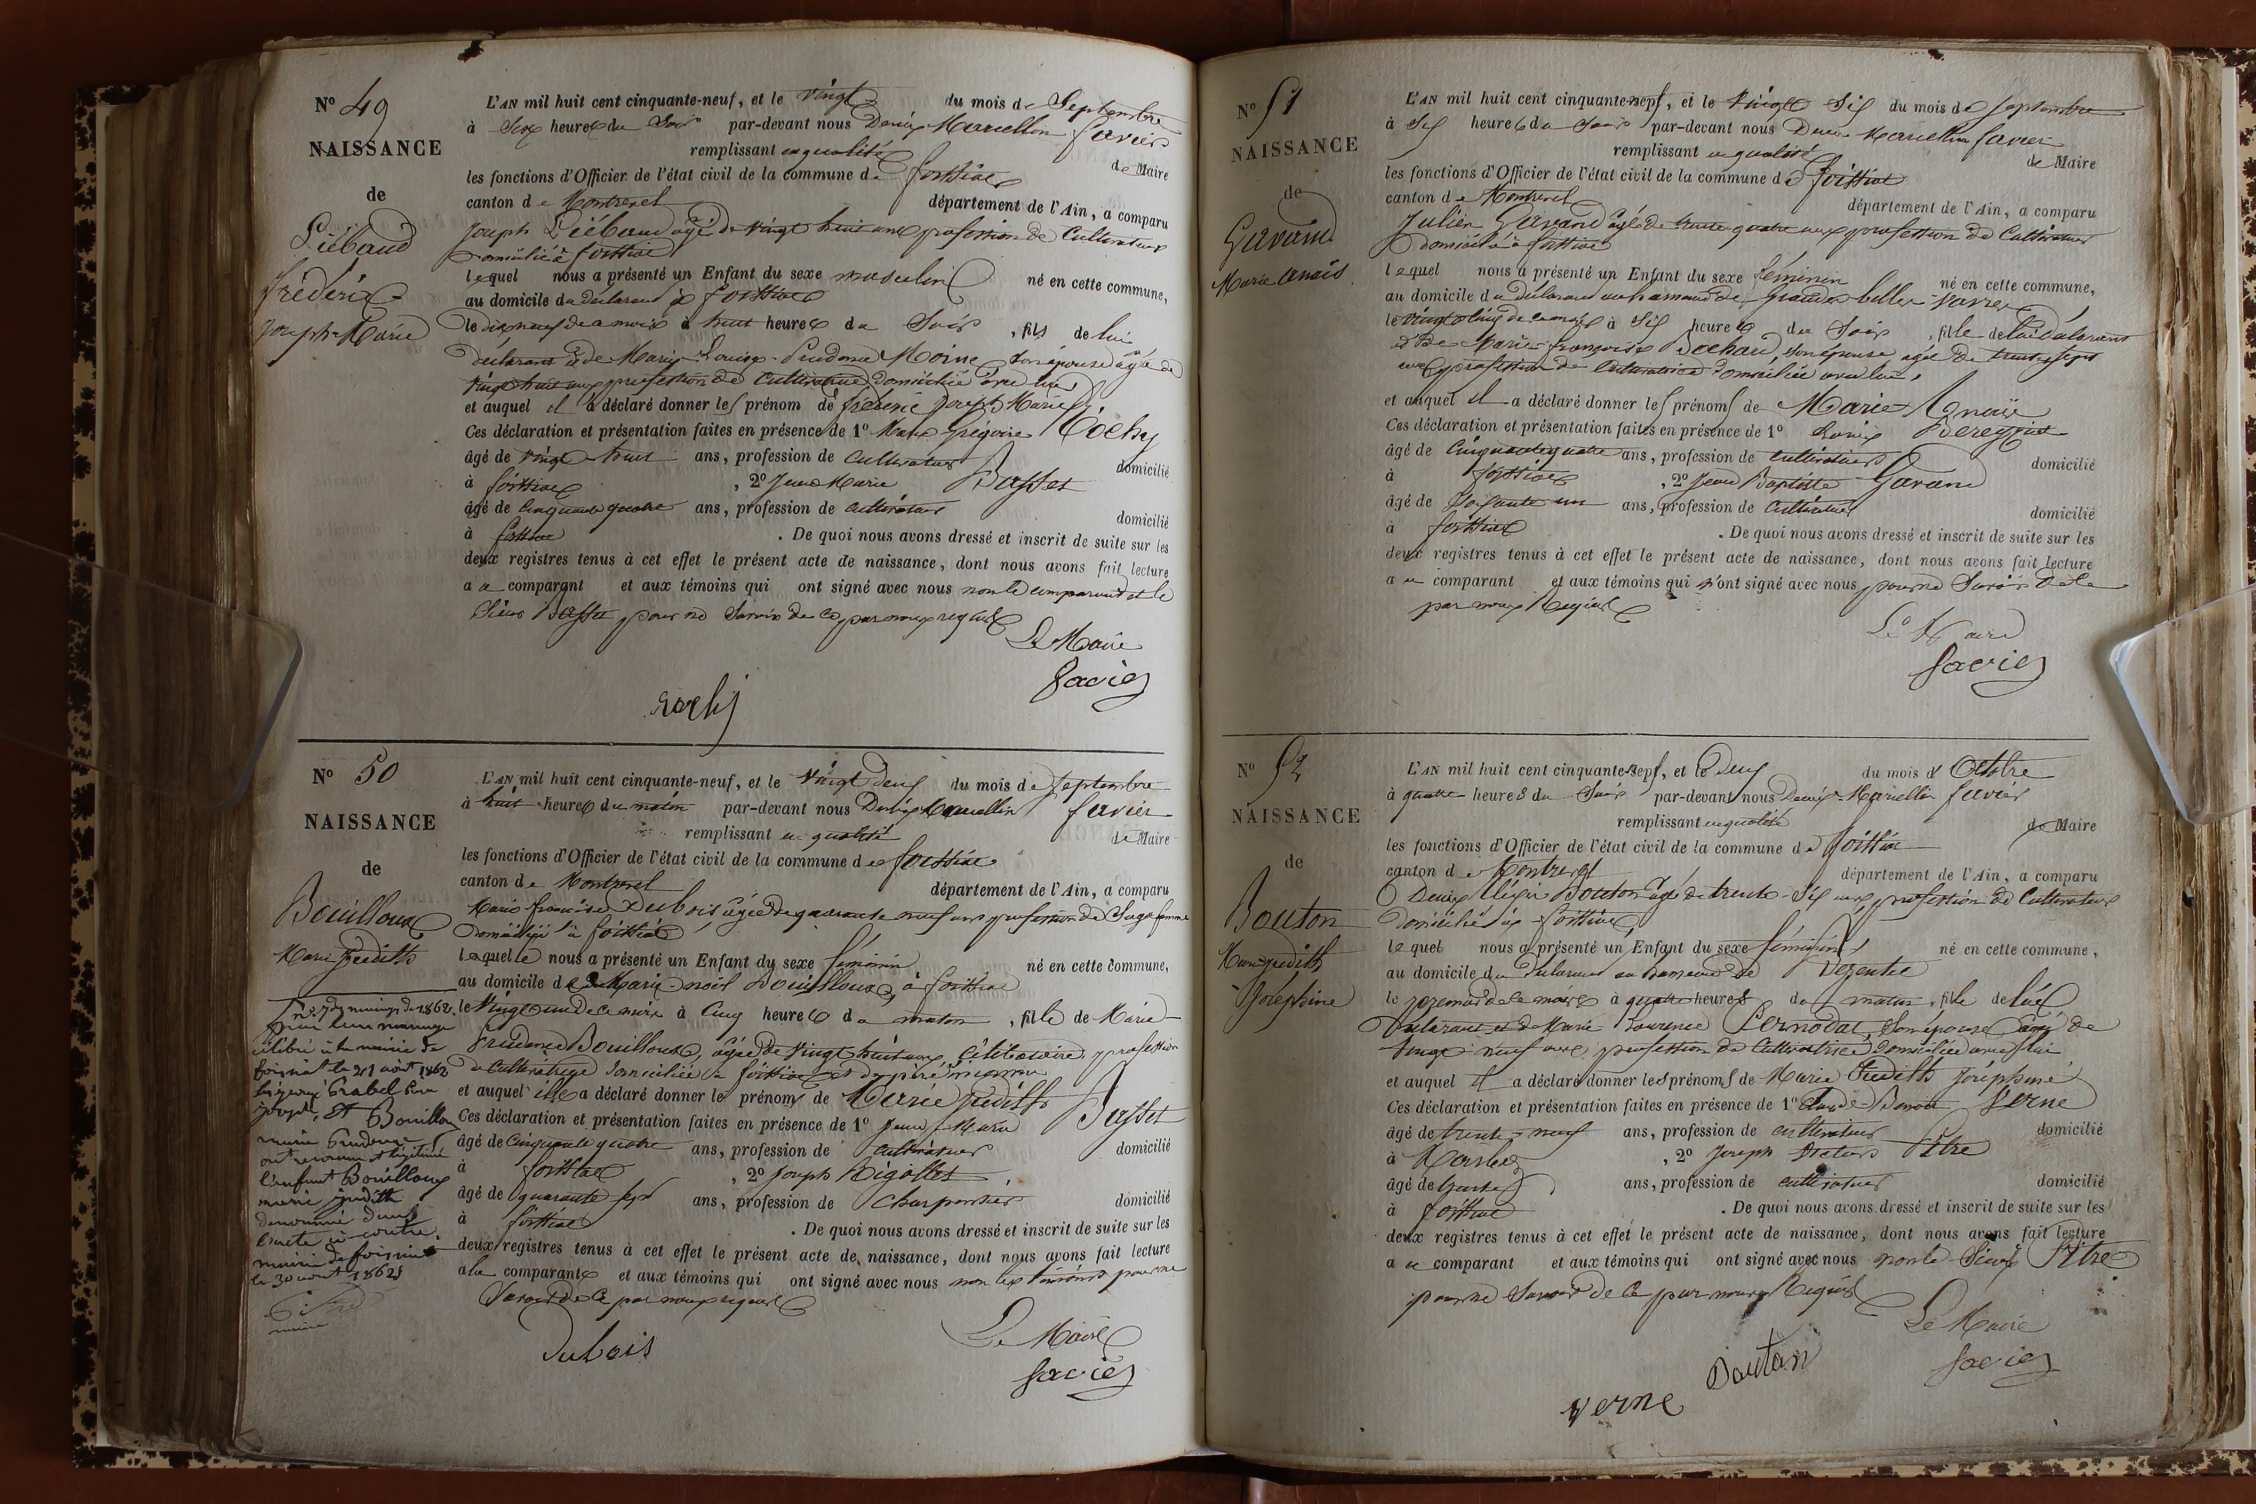 N° 49
NAISSANCE
de
Piébaud
frédéric
Joseph-Marie
L'AN mil huit cent cinquante-neuf, et le Vingt du mois de Septembre
à Six heures du Soir par-devant nous Denis Marcellin favier
remplissant en qualité de Maire
les fonctions d'Officier de l'état civil de la commune de foissiat
canton de Montrevel département de l'Ain, a comparu
Joseph Piébaud agé de Vingt huit ans profession de Cultivateur
domicilié à foissiat
lequel nous a présenté un Enfant du sexe masculin né en cette commune,
au domicile du déclarant à foissiat
le dix neuf de ce mois à huit heures du Soir, fils de lui
déclarant & de Marie Louise Prudence Moine Son épouse agée de
Vingt huit ans profession de Cultivatrice domiciliée avec lui
et auquel il a déclaré donner les prénom de fréderic Joseph Marie
Ces déclaration et présentation faites en présence de 1° Grégoire Rochy
âgé de Vingt huit ans, profession de Cultivateur domicilié
à foissiat, 2° Jean Marie Basset
âgé de Cinquante quatre ans, profession de Cultivateur domicilié
à foissiat. De quoi nous avons dressé et inscrit de suite sur les
deux registres tenus à cet effet le présent acte de naissance, dont nous avons fait lecture
au comparant et aux témoins qui ont signé avec nous non le comparant et le
Sieur Basset pour ne Savoir de ce par nous requis
Le Maire
Favier
Rochy
N° 50
NAISSANCE
de
Bouilloux
Marie Judith
L'AN mil huit cent cinquante-neuf, et le Vingt deux du mois de Septembre
à huit heures du matin par-devant nous Denis Marcellin favier
remplissant en qualité de Maire
les fonctions d'Officier de l'état civil de la commune de foissiat
canton de Montrevel département de l'Ain, a comparu
Marie françoise Dubois agée de quarante neuf ans profession de Sage femme
domiciliée à foissiat
laquelle nous a présenté un Enfant du sexe féminin né en cette commune,
au domicile de Marie noël Bouilloux, à foissiat
le Vingt un de ce mois à Cinq heures du matin, fille de Marie
Prudence Bouilloux, agée de Vingt huit ans, Célibataire, profession
de Cultivatrice domiciliée à foissiat et de père inconnu
et auquel elle a déclaré donner le prénoms de Marie Judith
Ces déclaration et présentation faites en présence de 1° Jean Marie Basset
âgé de Cinquante quatre ans, profession de Cultivateur domicilié
à foissiat, 2° Joseph Rigollet
âgé de quarante sept ans, profession de Charpentier domicilié
à foissiat. De quoi nous avons dressé et inscrit de suite sur les
deux registres tenus à cet effet le présent acte de naissance, dont nous avons fait lecture
à la comparante et aux témoins qui ont signé avec nous non les témoins pour ne
Savoir de ce par nous requis
Le Maire
Favier
Dubois
par leur mariage
célébré à la mairie de
foissiat le 21 août 1862
joseph, et Bouilloux
marie Prudence
ont reconnu et légitimé
l'enfant Bouilloux
marie judith
dénommé dans
l'acte ci contre.
mairie de foissiat
le 30 août 1862
maire
N° 51
NAISSANCE
de
Gavand
Marie Anaïs
L'AN mil huit cent cinquante-neuf, et le Vingt Six du mois de Septembre
à Six heures du Soir par-devant nous Denis Marcellin favier
remplissant en qualité de Maire
les fonctions d'Officier de l'état civil de la commune de foissiat
canton de Montrevel département de l'Ain, a comparu
Julien Gavand agé de trente quatre ans profession de Cultivateur
domicilié à foissiat
lequel nous a présenté un Enfant du sexe féminin né en cette commune,
au domicile du déclarant au hameau de
le Vingt cinq de ce mois à Six heures du Soir, fille de lui déclarant
& de Marie françoise Bochard, Son épouse agée de trente sept
ans profession de Cultivatrice domiciliée avec lui,
et auquel il a déclaré donner les prénoms de Marie Anaïs
Ces déclaration et présentation faites en présence de 1° Louis Bereyziat
âgé de Cinquante quatre ans, profession de Cultivateur domicilié
à foissiat, 2° Jean Baptiste Gavand
âgé de Soixante un ans, profession de Cultivateur domicilié
à foissiat. De quoi nous avons dressé et inscrit de suite sur les
deux registres tenus à cet effet le présent acte de naissance, dont nous avons fait lecture
au comparant et aux témoins qui n'ont signé avec nous pour ne Savoir de ce
par nous Requis
Le Maire
Favier
N° 52
NAISSANCE
de
Bouton
Marie Judith
Joséphine
L'AN mil huit cent cinquante-neuf, et le Deux du mois d'Octobre
à quatre heures du Soir par-devant nous Denis Marcellin favier
remplissant en qualité de Maire
les fonctions d'Officier de l'état civil de la commune de foissiat
canton de Montrevel département de l'Ain, a comparu
Denis Bouton agé de trente Six ans, profession de Cultivateur
domicilié à foissiat
lequel nous a présenté un Enfant du sexe féminin né en cette commune,
au domicile du déclarant au hameau de
le premier de ce mois à quatre heures du matin, fille de lui
déclarant et de Marie Laurence Pernodat, Son épouse agée de
Vingt neuf ans, profession de Cultivatrice domiciliée avec lui
et auquel il a déclaré donner les prénoms de Marie Judith Joséphine
Ces déclaration et présentation faites en présence de 1° Claude Benoit Verne
âgé de trente neuf ans, profession de cultivateur domicilié
à Marsonnas, 2° Joseph Pitre
âgé de trente ans, profession de cultivateur domicilié
à foissiat. De quoi nous avons dressé et inscrit de suite sur les
deux registres tenus à cet effet le présent acte de naissance, dont nous avons fait lecture
au comparant et aux témoins qui ont signé avec nous non le Sieur Pitre
pour ne Savoir de ce par nous Requis
Le Maire
Favier
Bouton
Verne